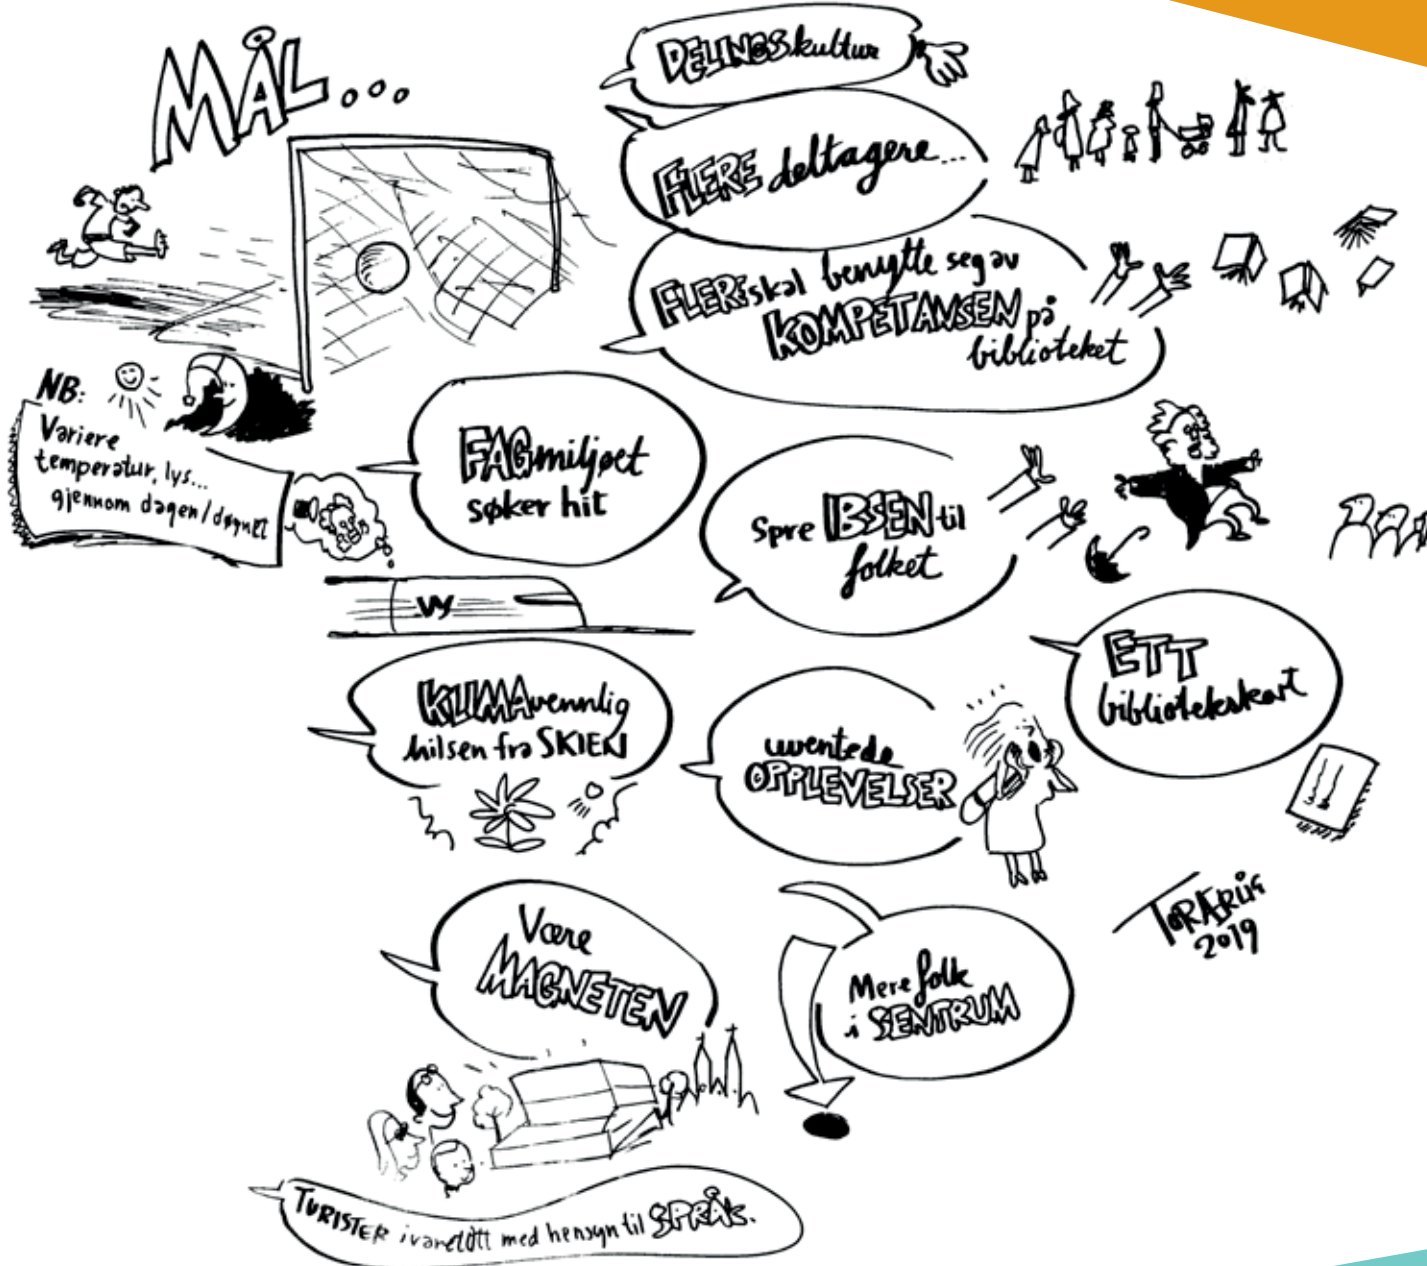 MÅL...
DELINGSkultur
FLERE deltagere...
FLERE skal benytte seg av
KOMPETANSEN på
biblioteket
NB:
Variere
temperatur, lys...
gjennom dagen/døgnet
FAGmiljøet
søker hit
Spre IBSEN til
folket
VY
KLIMAvennlig
hilsen fra SKIEN
uventede
OPPLEVELSER
ETT
bibliotekskort
Være
MAGNETEN
Mere folk
i SENTRUM
TORÆRLIG
2019
TURISTER ivaretatt med hensyn til SPRÅK.